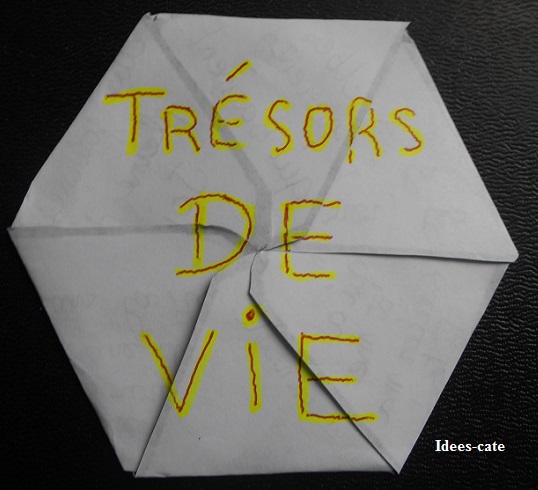 TRÉSORS
DE
ViE
Idees-cate